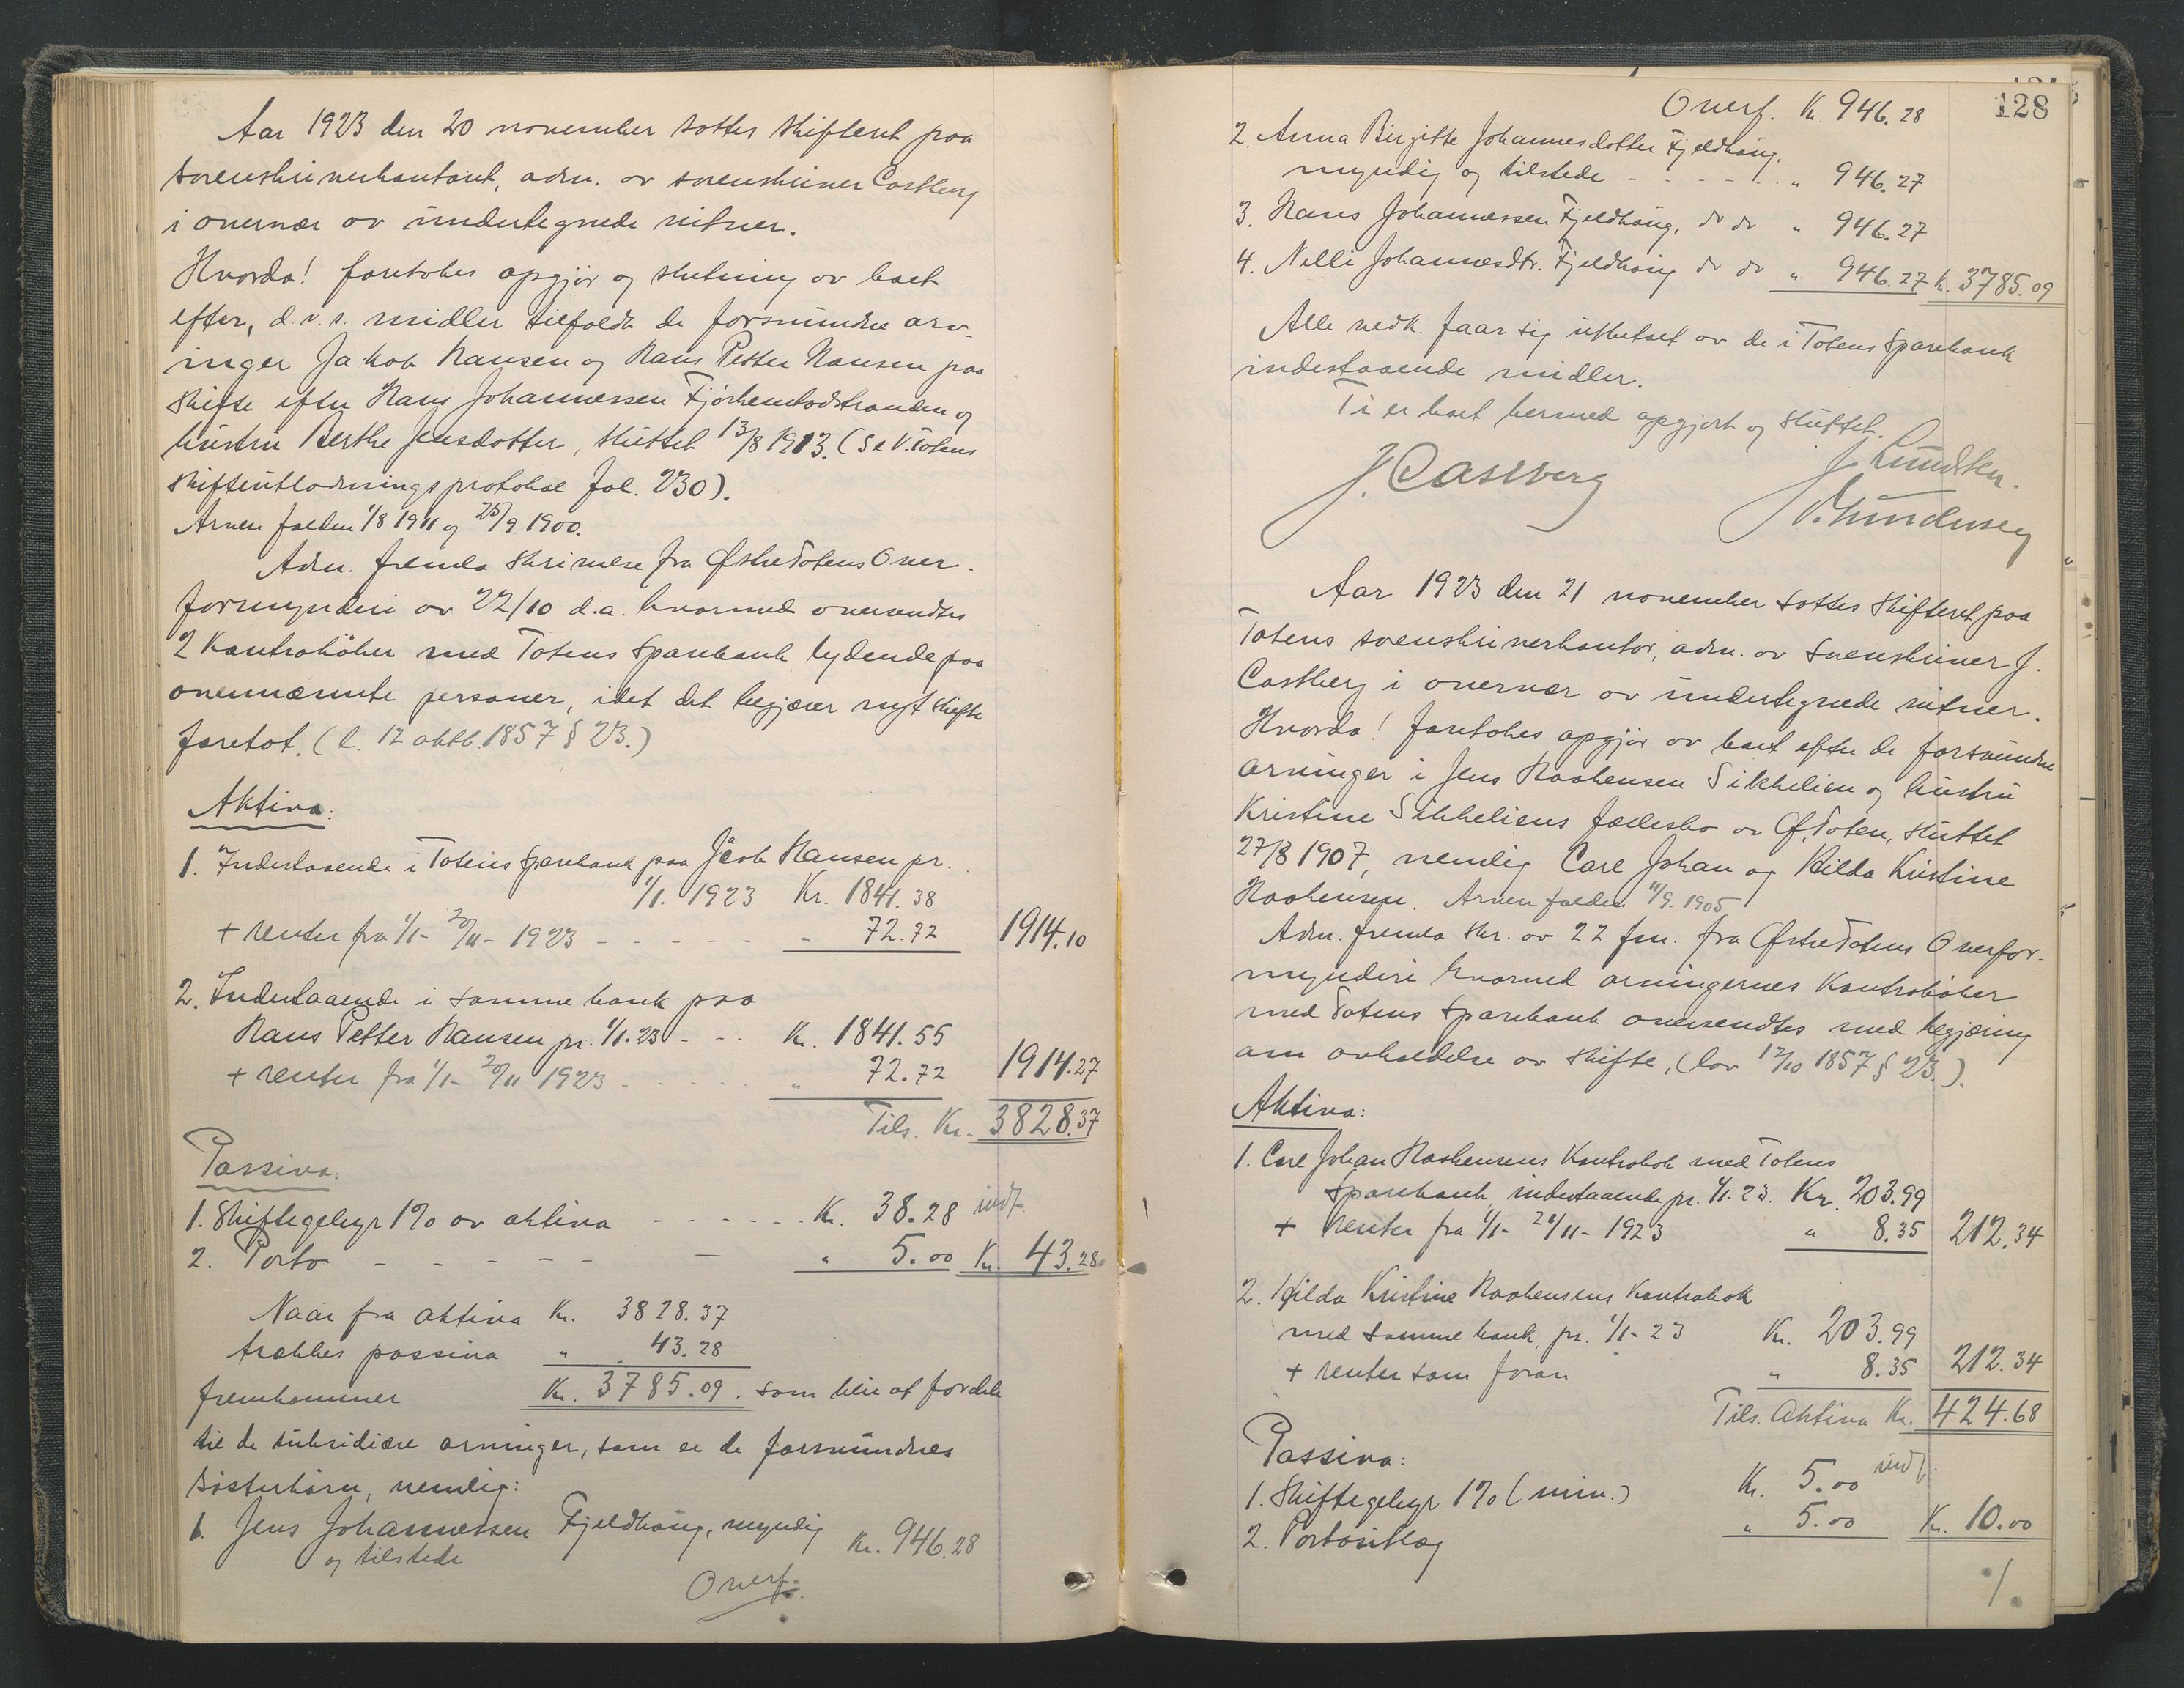 Aar 1923 den 20 november sattes skifteret paa
sorenskriverkontoret, adm. av sorenskriver Castberg
i overvær av undertegnede vitner.
Hvorda! foretokes opgjør og slutning av boet
efter, d.v.s. midler tilfaldt de forsvundne arv-
inger Jakob Hansen og Hans Petter Hansen paa
skifte efter Hans Johannessen Fjørkenstadstranden og
hustru Berthe Jensdotter, sluttet 13/8 1913. (Se V. Totens
skifteutlodningsprotokol fol. 230).
Arven falden 1/8 1911 og 25/9. 1900.
Adm. fremla skrivelse fra Østre Totens Over-
formynderi av 22/10 d.a. hvormed oversendtes
2 Kontrabøker med Totens Sparebank lydende paa
ovennævnte personer, idet det begjærer nyt skifte
foretat. (l. 12 oktb. 1857 § 23.)
Aktiva:
1. Indestaaende i Totens Sparebank paa Jacob Hansen pr.
1/1. 1923 Kr. 1841.38
+ renter fra 1/1 - 20/11 - 1923 - - - - - " 72.72 1914.10
2. Indestaaende i samme bank paa
Hans Petter Hansen pr. 1/1. 23 - - - Kr. 1841.55
+ renter fra 1/1 - 20/11 1923 - - - - - " 72.72 1914.27
Tils. Kr. 3828.37
Passiva:
1. Skiftegebyr 1% av aktiva - - - - - - Kr. 38.28 indf.
2. Porto - - - - - - " 5.00 Kr. 43.28
Naar fra aktiva Kr. 3828.37
trækkes passiva " 43.28
fremkommer Kr. 3785.09. som blir at fordele
til de subsidiære arvinger, som er de forsvundnes
søsterbarn, nemlig:
1. Jens Johannessen Fjeldhaug, myndig
og tilstede Kr. 946.28
Overf.
128
Overf. Kr. 946.28
2. Anna Birgitte Johannesdotter Fjeldhaug,
myndig og tilstede - - - - - - " 946.27
3. Hans Johannessen Fjeldhaug, do do " 946.27
4. Nelli Johannesdtr. Fjeldhaug do do " 946.27 Kr. 3785.09
Alle vedk. faar sig utbetalt av de i Totens Sparebank
indestaaende midler.
Ti er boet hermed opgjort og sluttet.
J. Castberg
J. Lundsten.
Gundersen
Aar 1923 den 21 november sattes skifteret paa
Totens sorenskriverkontor, adm. av Sorenskriver J.
Castberg i overvær av undertegnede vitner.
Hvorda! foretokes opgjør av boet efter de forsvundne
arvinger i Jens Haakensen Sikkelien og hustru
Kristine Sikkeliens fællesbo av Ø. Toten, sluttet
27/8 1907, nemlig Carl Johan og Hilda Kristine
Haakensen. Arven falden 11/9. 1905
Adm. fremla skr. av 22 fm. fra Østre Totens Overfor-
mynderi hvormed arvingernes Kontrabøker
med Totens Sparebank oversendtes med begjæring
om avholdelse av skifte, (lov 12/10 1857 § 23.).
Aktiva:
1. Carl Johan Haakensens Kontrabok med Totens
Sparebank, indestaaende pr. 1/1. 23. Kr. 203.99
+ Renter fra 1/1 - 20/11 - 1923 " 8.35 212.34
2. Hilda Kristine Haakensens Kontrabok
med samme bank, pr. 1/1 - 23 Kr. 203.99
+ renter som foran " 8.35 212.34
Tils. Aktiva Kr. 424.68
Passiva:
1. Skiftegebyr 1% (min.) Kr. 5.00 indf.
2. Portoutlæg " 5.00 Kr. 10.00
./.